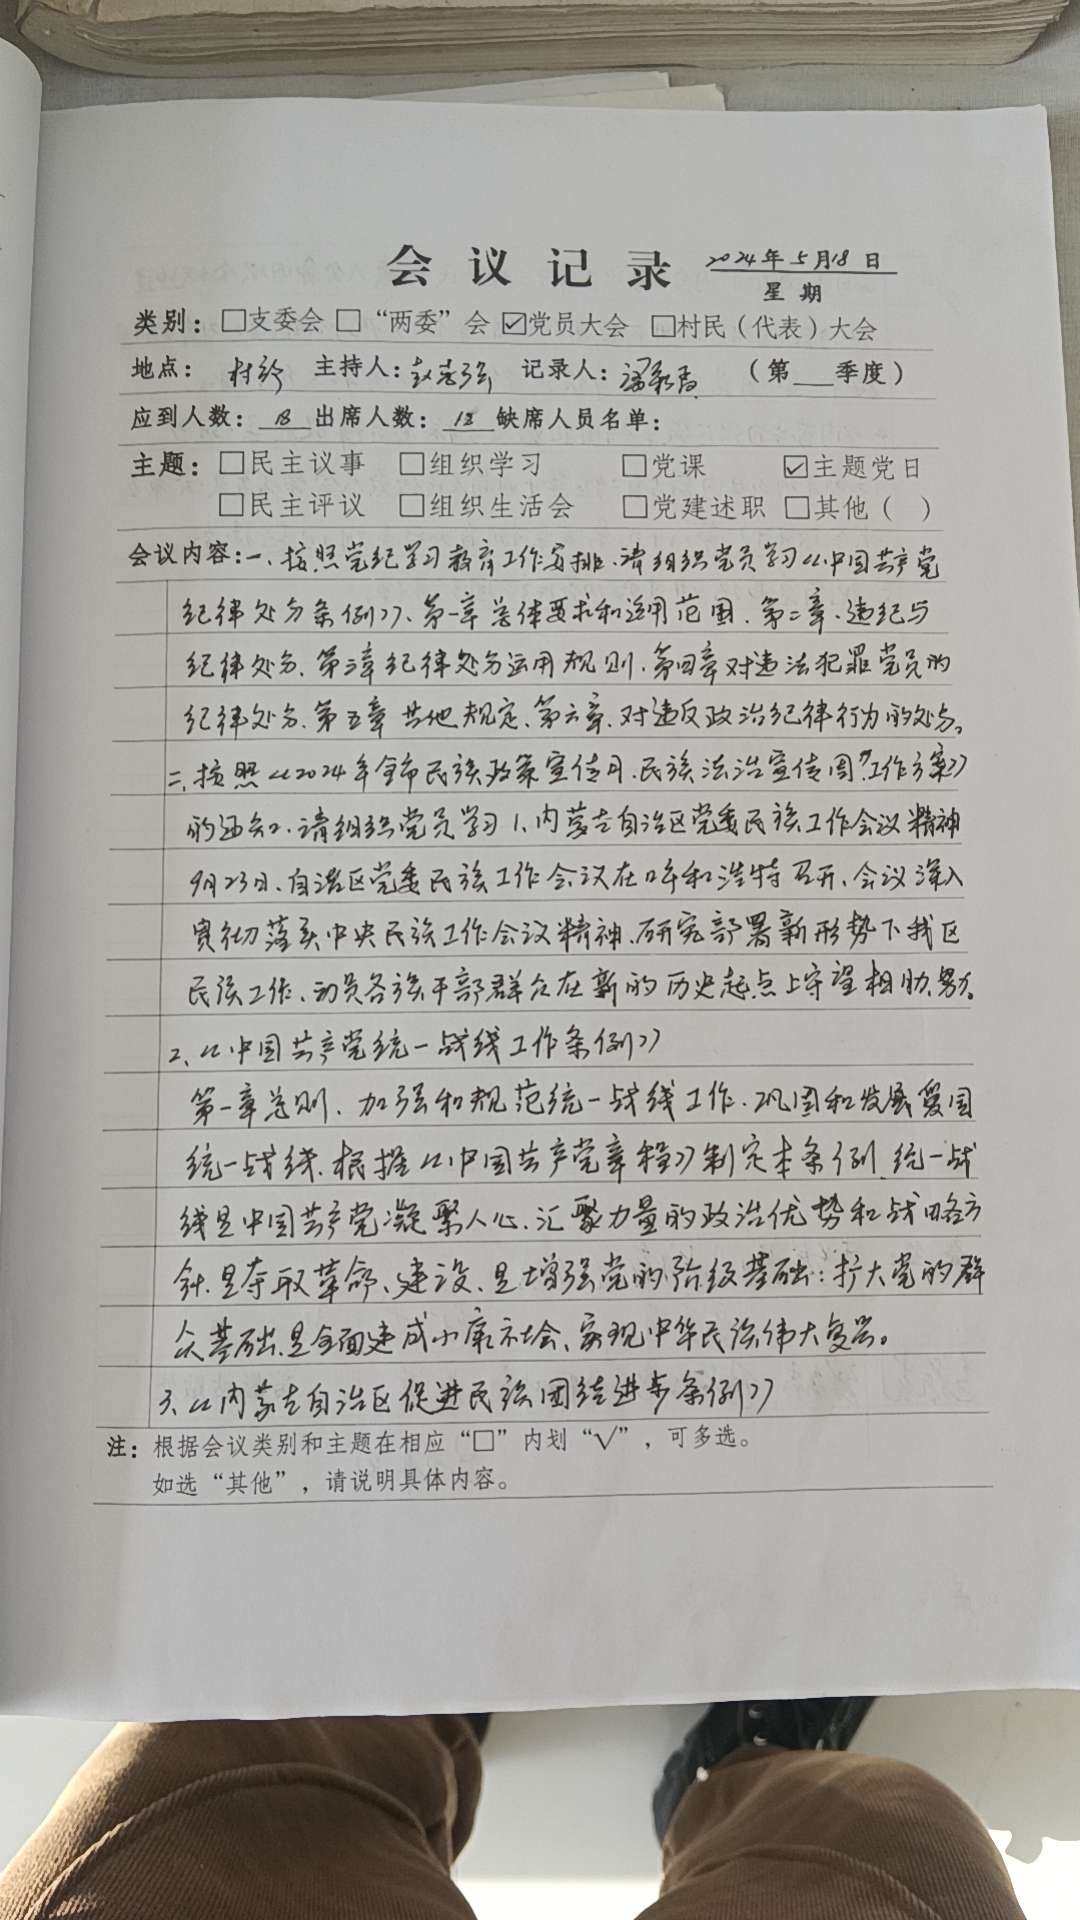 会议记录 2024年5月18日
星期
类别：□支委会 □“两委”会 ☑党员大会 □村民（代表）大会
地点： 村 主持人： 记录人： （第 季度）
应到人数：18 出席人数：18 缺席人员名单：
主题：□民主议事 □组织学习 □党课 ☑主题党日
□民主评议 □组织生活会 □党建述职 □其他（ ）
会议内容：一、按照党纪学习教育工作安排、请组织党员学习《中国共产党
纪律处分条例》、第一章总体要求和适用范围、第二章、违纪与
纪律处分、第三章纪律处分运用规则、第四章对违法犯罪党员的
纪律处分、第五章其他规定、第六章、对违反政治纪律行为的处分。
二、按照《2024年全市民族政策宣传月、民族法治宣传周”工作方案》
的通知、请组织党员学习1、内蒙古自治区党委民族工作会议精神
9月23日、自治区党委民族工作会议在呼和浩特召开、会议深入
贯彻落实中央民族工作会议精神、研究部署新形势下我区
民族工作、动员各族干部群众在新的历史起点上守望相助、努力。
2、《中国共产党统一战线工作条例》
第一章总则、加强和规范统一战线工作、巩固和发展爱国
统一战线、根据《中国共产党章程》制定本条例、统一战
线是中国共产党凝聚人心、汇聚力量的政治优势和战略方
针、是夺取革命、建设、是增强党的阶级基础：扩大党的群
众基础、是全面建成小康社会、实现中华民族伟大复兴。
3、《内蒙古自治区促进民族团结进步条例》
注：根据会议类别和主题在相应“□”内划“√”，可多选。
如选“其他”，请说明具体内容。